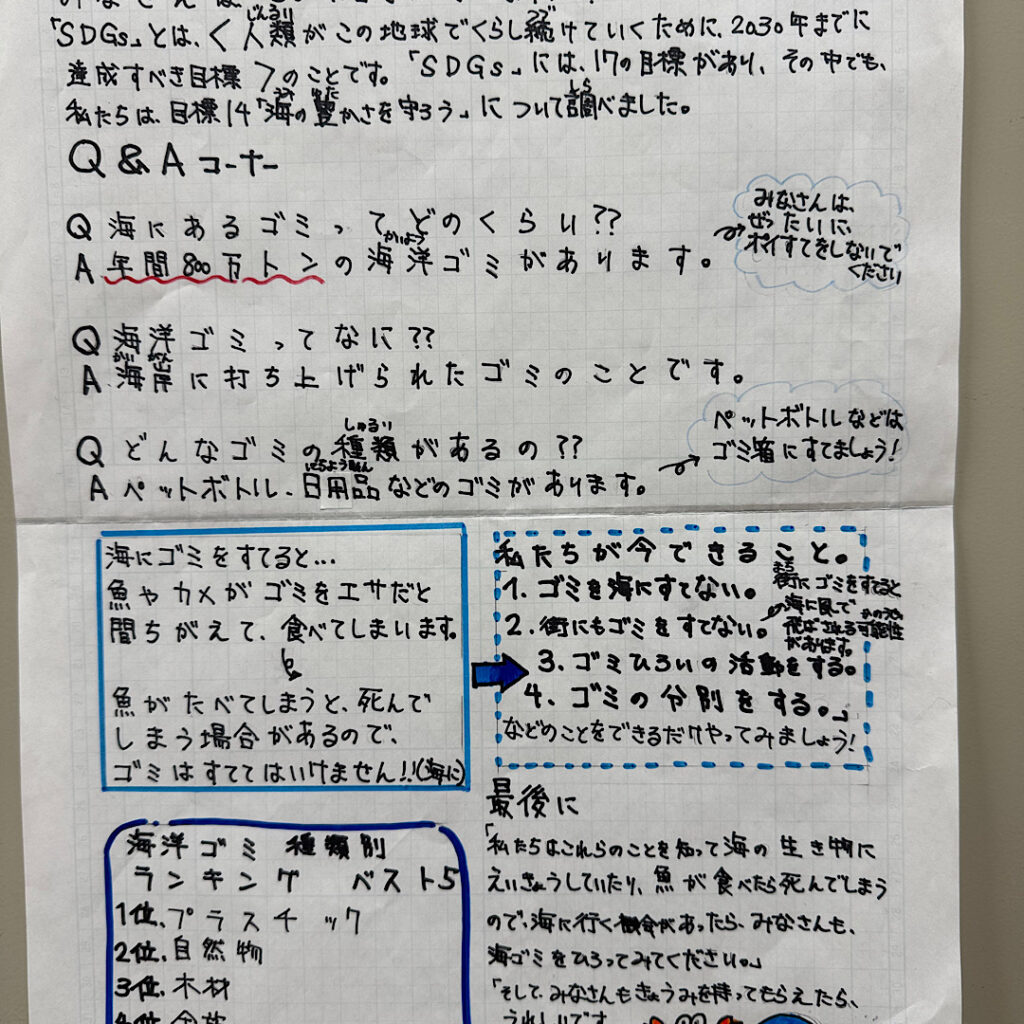 「SDGs」とは、く人類がこの地球でくらし続けていくために、2030年までに
達成すべき目標7のことです。「SDGs」には、17の目標があり、その中でも、
私たちは、目標14「海の豊かさを守ろう」について調べました。
Q&Aコーナー
Q 海にあるゴミってどのくらい??
A 年間800万トンの海洋ゴミがあります。
みなさんは、
ぜったいに、
ポイすてをしないで
ください
Q 海洋ゴミってなに??
A 海岸に打ち上げられたゴミのことです。
Q どんなゴミの種類があるの??
A ペットボトル、日用品などのゴミがあります。
ペットボトルなどは
ゴミ箱にすてましょう!
海にゴミをすてると…
魚ヤカメがゴミをエサだと
間ちがえて、食べてしまいます。
魚がたべてしまうと、死んで
しまう場合があるので、
ゴミはすててはいけません!!(海に)
私たちが今できること。
1. ゴミを海にすてない。
2. 街にもゴミをすてない。
街にゴミをすてると
海に風で
飛ばされる可能性
があります。
3. ゴミひろいの活動をする。
4. ゴミの分別をする。」
などのことをできるだけやってみましょう!
海洋ゴミ 種類別
ランキング ベスト5
1位、プラスチック
2位、自然物
3位、木材
最後に
「私たちはこれらのことを知って海の生き物に
えいきょうしていたり、魚が食べたら死んでしまう
ので、海に行く機会があったら、みなさんも、
海ゴミをひろってみてください。」
「そして、みなさんもきょうみを持ってもらえたら、
うれしいです